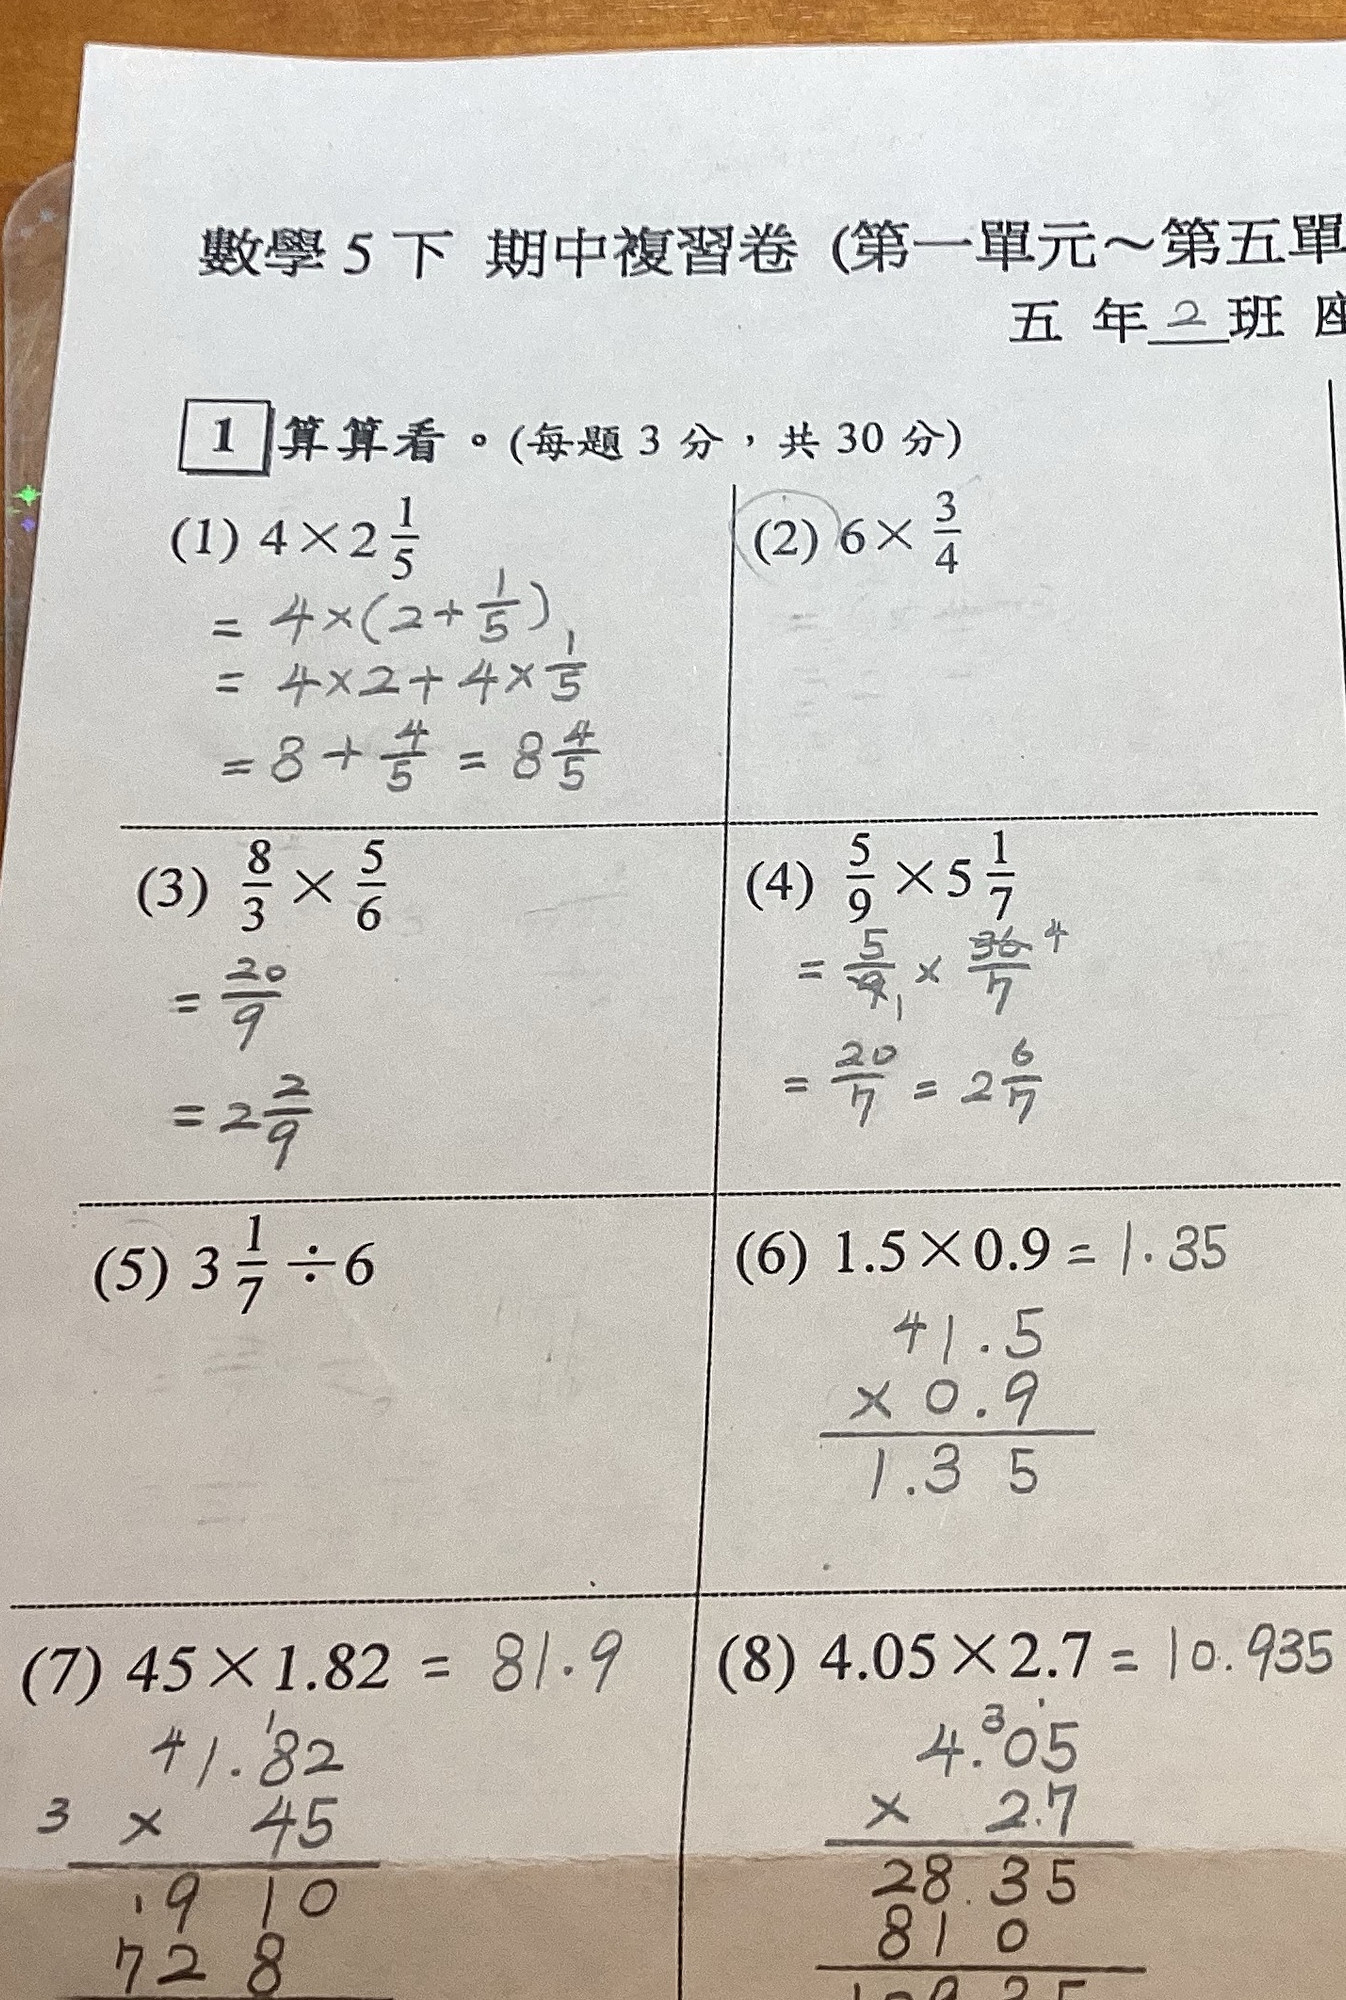 數學 5 下 期中複習卷 (第一單元～第五單
五 年 2 班 座
1 算算看。(每題 3 分，共 30 分)
(1) 4×2 1/5
= 4×(2+1/5)
= 4×2+4×1/5
= 8+4/5 = 8 4/5
(2) 6×3/4
(3) 8/3×5/6
= 20/9
= 2 2/9
(4) 5/9×5 1/7
= 5/9 1 × 36/7 4
= 20/7 = 2 6/7
(5) 3 1/7÷6
(6) 1.5×0.9 = 1.35
4 1.5
× 0.9
1.3 5
(7) 45×1.82 = 81.9
4 1 1.82
3 × 45
9 1 0
72 8
(8) 4.05×2.7 = 10.935
3
4.05
× 2.7
28.35
81 0